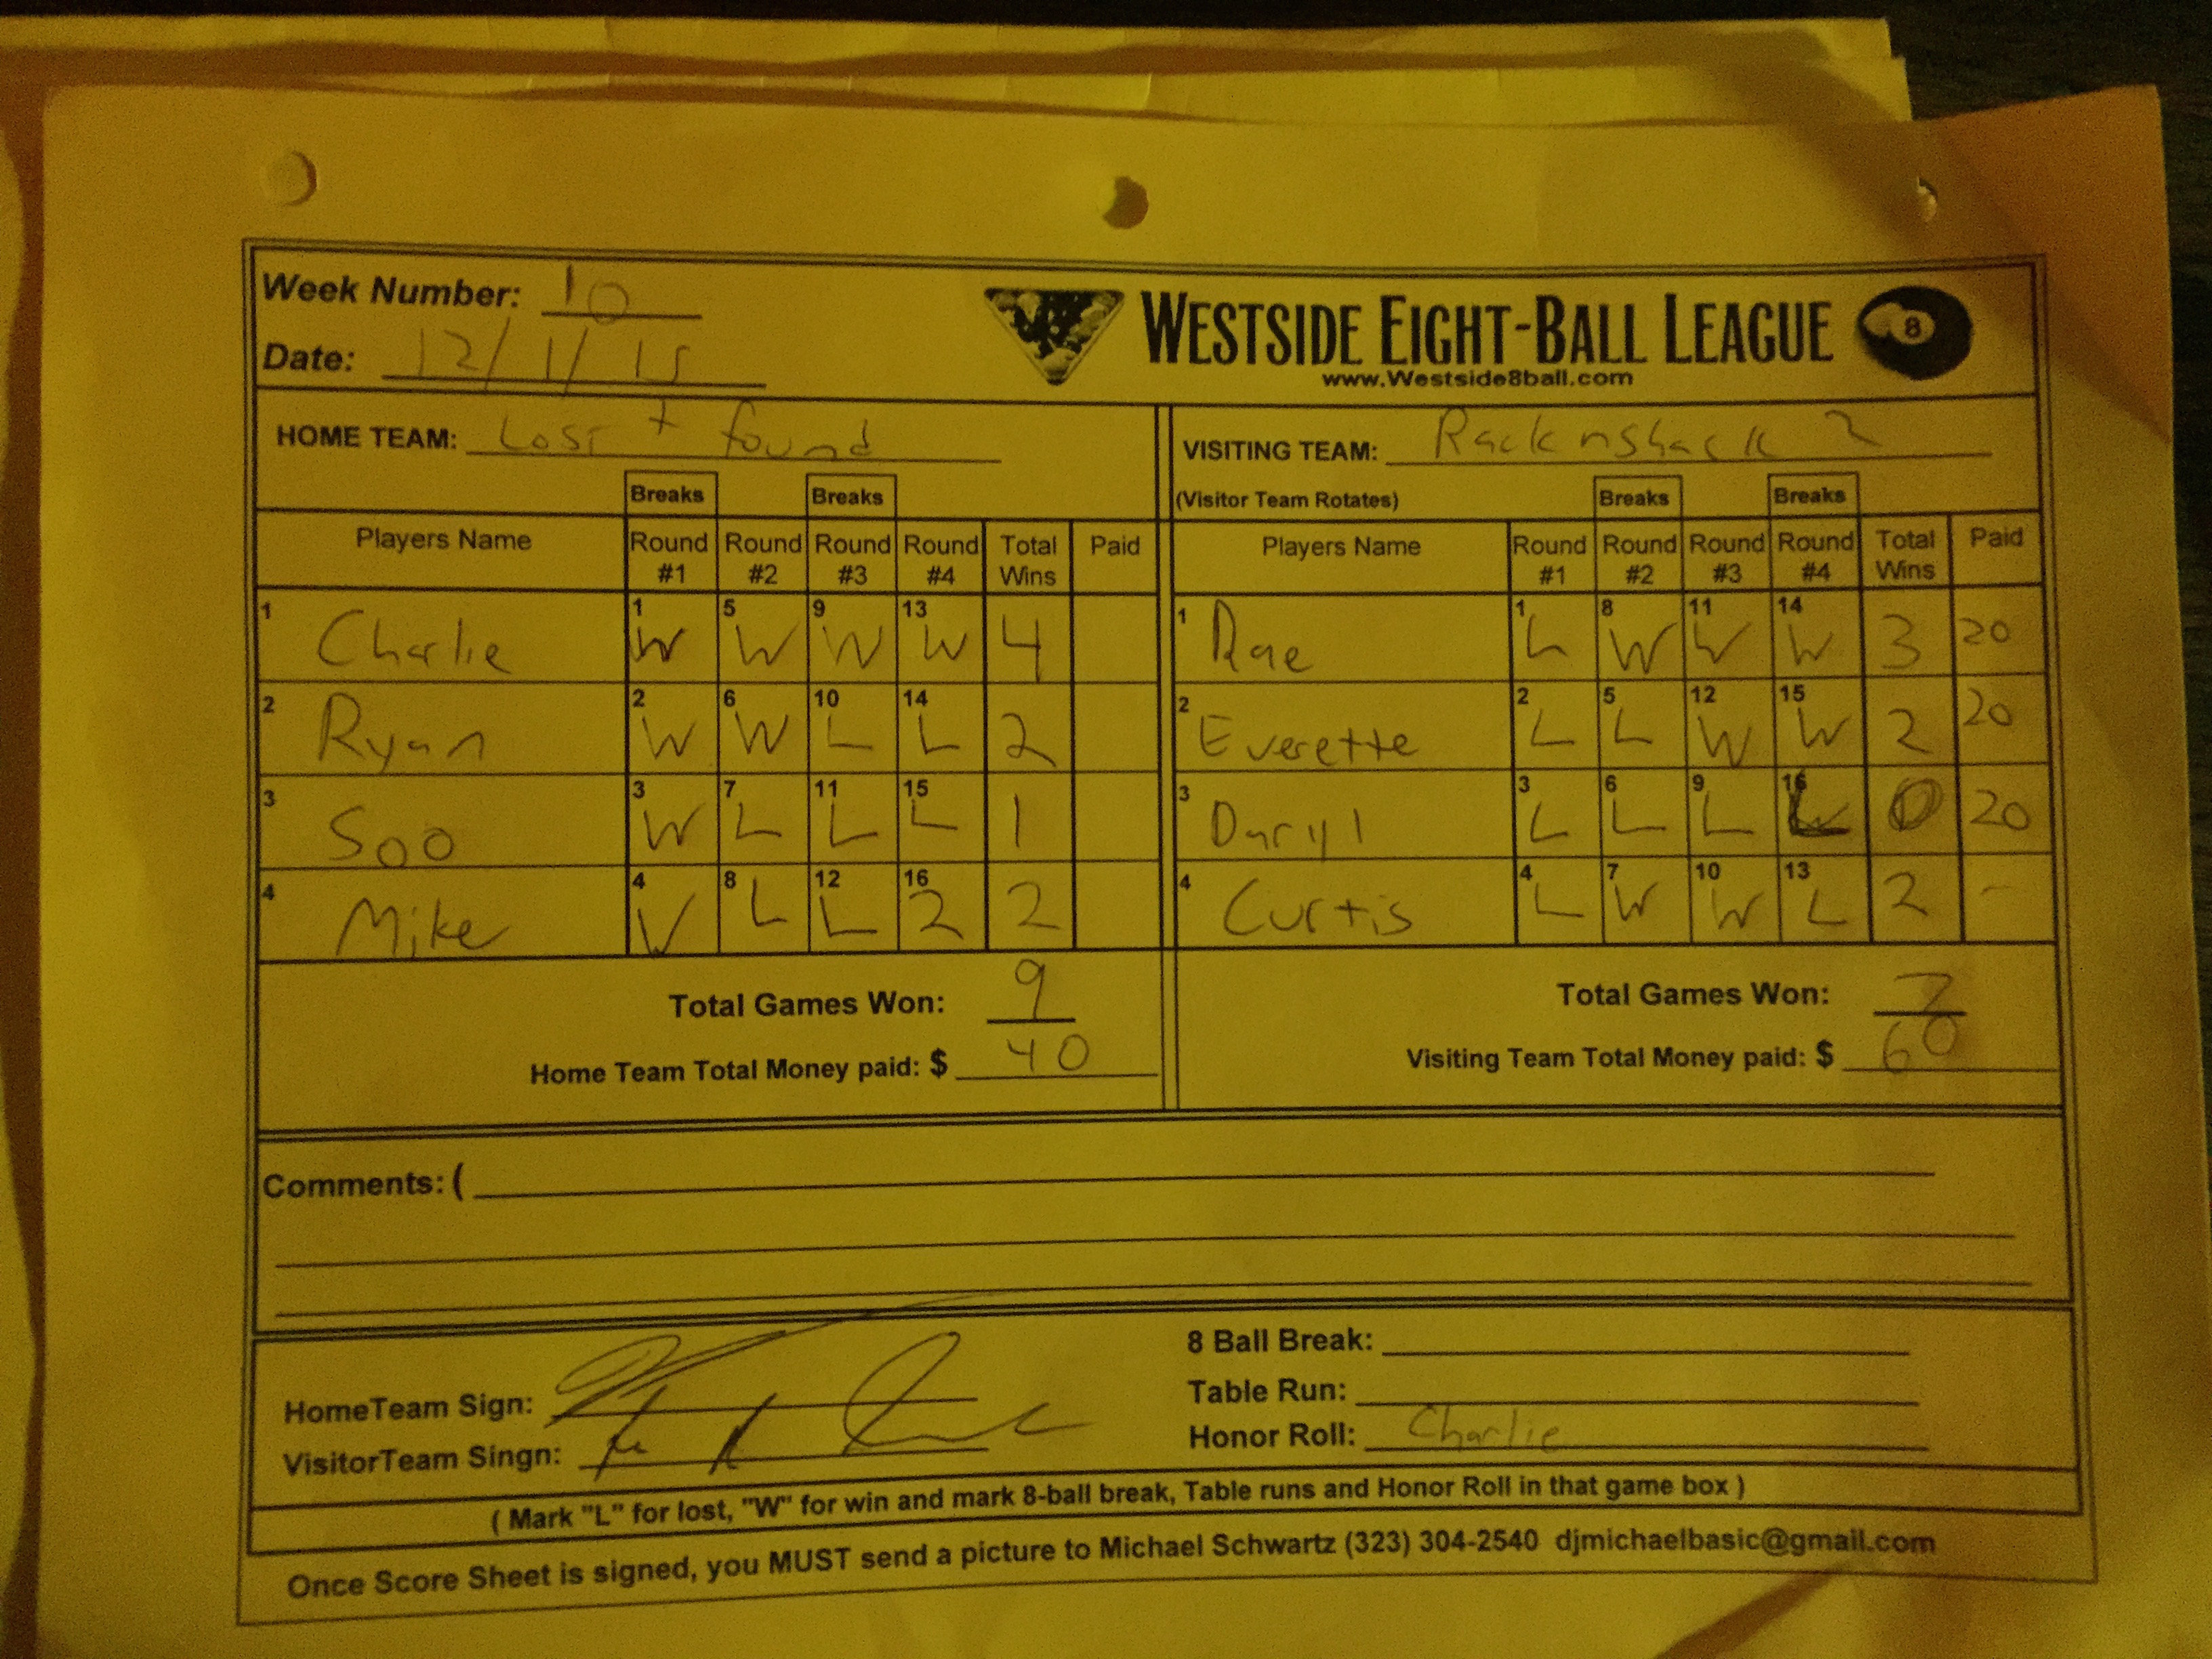 Week Number: 10
Date: 12/1/15
WESTSIDE EIGHT-BALL LEAGUE 8
www.Westside8ball.com
HOME TEAM: Lost + found
VISITING TEAM: Racknshack 2
Breaks Breaks
(Visitor Team Rotates) Breaks Breaks
Players Name Round #1 Round #2 Round #3 Round #4 Total Wins Paid
1 Charlie 1 W 5 W 9 W 13 W 4
2 Ryan 2 W 6 W 10 L 14 L 2
3 Soo 3 W 7 L 11 L 15 L 1
4 Mike 4 W 8 L 12 L 16 2 2
Total Games Won: 9
Home Team Total Money paid: $ 40
Players Name Round #1 Round #2 Round #3 Round #4 Total Wins Paid
1 Rae 1 L 8 W 11 W 14 W 3 20
2 Everette 2 L 5 L 12 W 15 W 2 20
3 Daryl 3 L 6 L 9 L 16 L 0 20
4 Curtis 4 L 7 W 10 W 13 L 2 -
Total Games Won: 7
Visiting Team Total Money paid: $ 60
Comments: (
HomeTeam Sign:
VisitorTeam Singn:
8 Ball Break:
Table Run:
Honor Roll: Charlie
( Mark "L" for lost, "W" for win and mark 8-ball break, Table runs and Honor Roll in that game box )
Once Score Sheet is signed, you MUST send a picture to Michael Schwartz (323) 304-2540 djmichaelbasic@gmail.com